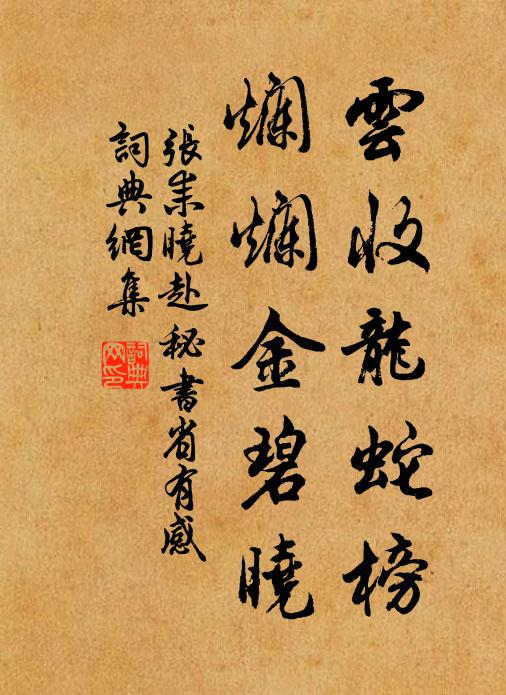 雲收龍蛇榜
爛爛金碧曉
張耒曉赴秘書省有感
詞典網集
詞典網印